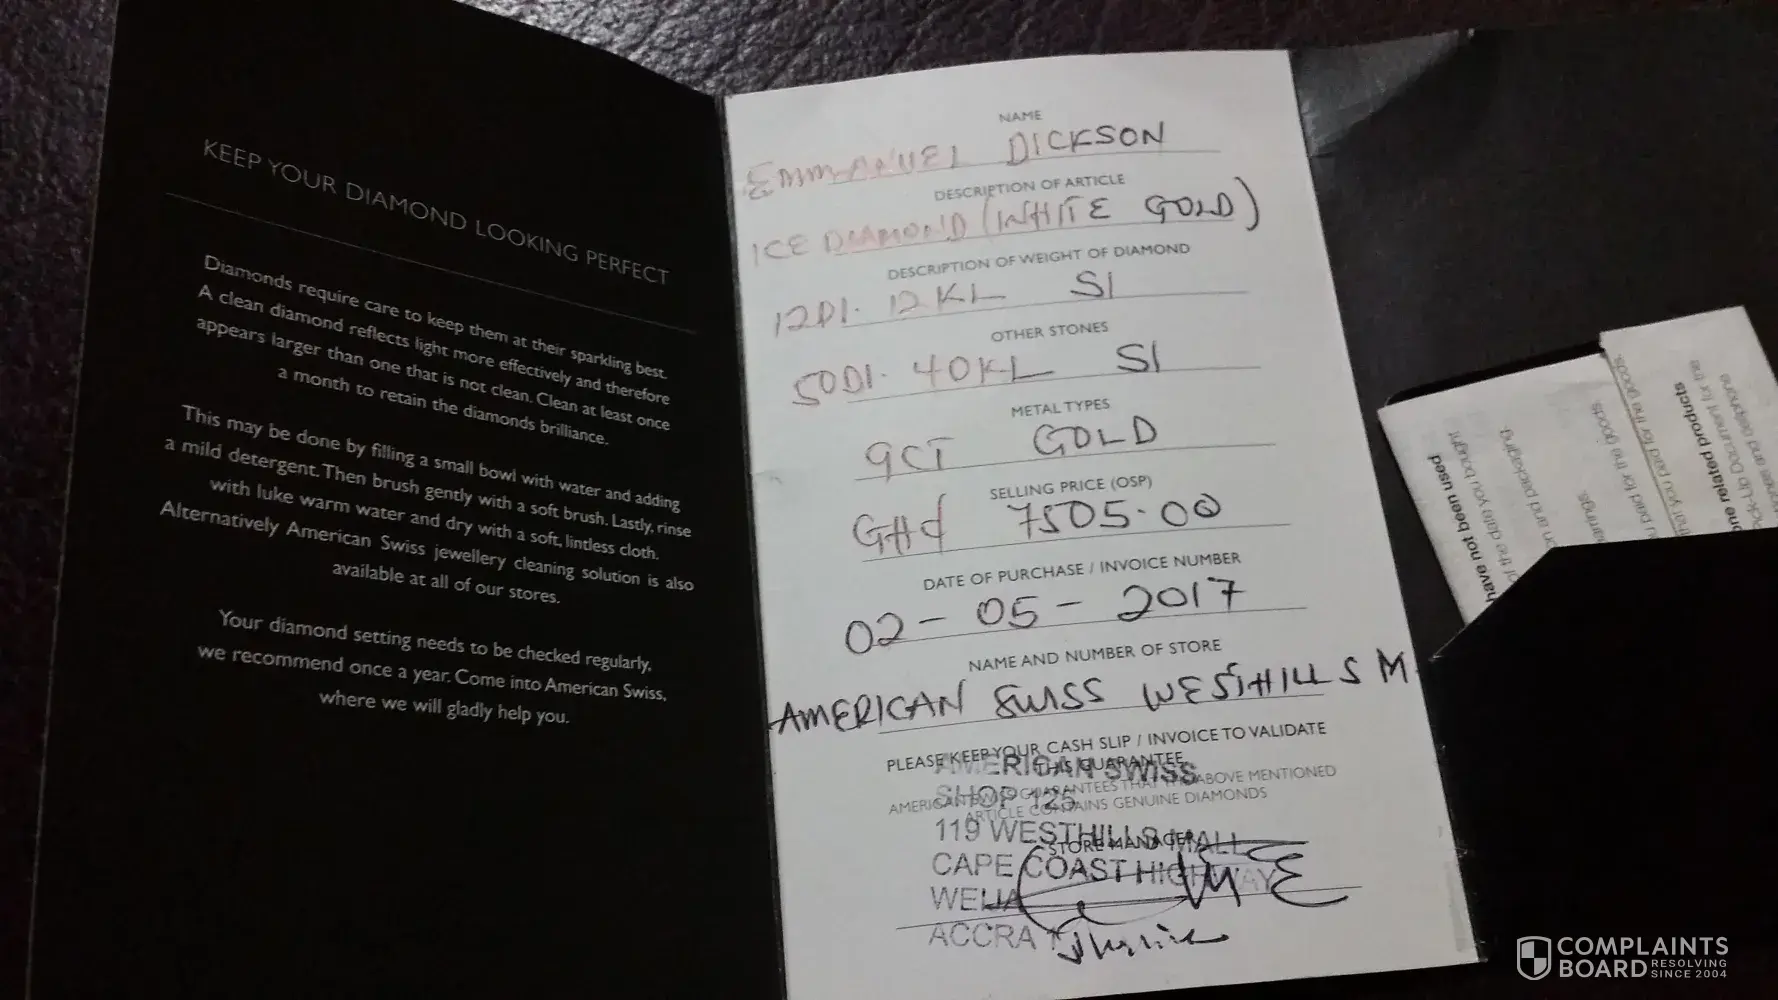 KEEP YOUR DIAMOND LOOKING PERFECT
Diamonds require care to keep them at their sparkling best.
A clean diamond reflects light more effectively and therefore
appears larger than one that is not clean. Clean at least once
a month to retain the diamonds brilliance.
This may be done by filling a small bowl with water and adding
a mild detergent. Then brush gently with a soft brush. Lastly, rinse
with luke warm water and dry with a soft, lintless cloth.
Alternatively American Swiss jewellery cleaning solution is also
available at all of our stores.
Your diamond setting needs to be checked regularly,
we recommend once a year. Come into American Swiss,
where we will gladly help you.
NAME
EMMANUEL DICKSON
DESCRIPTION OF ARTICLE
ICE DIAMOND (WHITE GOLD)
DESCRIPTION OF WEIGHT OF DIAMOND
12DI. 12KL SI
OTHER STONES
50DI. 40KL SI
METAL TYPES
9CT GOLD
SELLING PRICE (OSP)
GH¢ 7505.00
DATE OF PURCHASE / INVOICE NUMBER
02-05-2017
NAME AND NUMBER OF STORE
AMERICAN SWISS WESTHILLS M
PLEASE KEEP YOUR CASH SLIP / INVOICE TO VALIDATE
THIS GUARANTEE
AMERICAN SWISS GUARANTEES THAT THE ABOVE MENTIONED
ARTICLE CONTAINS GENUINE DIAMONDS
STORE MANAGER
AMERICAN SWISS
SHOP 125
119 WESTHILLS MALL
CAPE COAST HIGHWAY
WEIJA
ACCRA
have not been used
of the date you bought
on and packaging.
u paid for the goods.
that you paid for the goods.
one related products
ock-Up Document for the
COMPLAINTS
BOARD RESOLVING
SINCE 2004